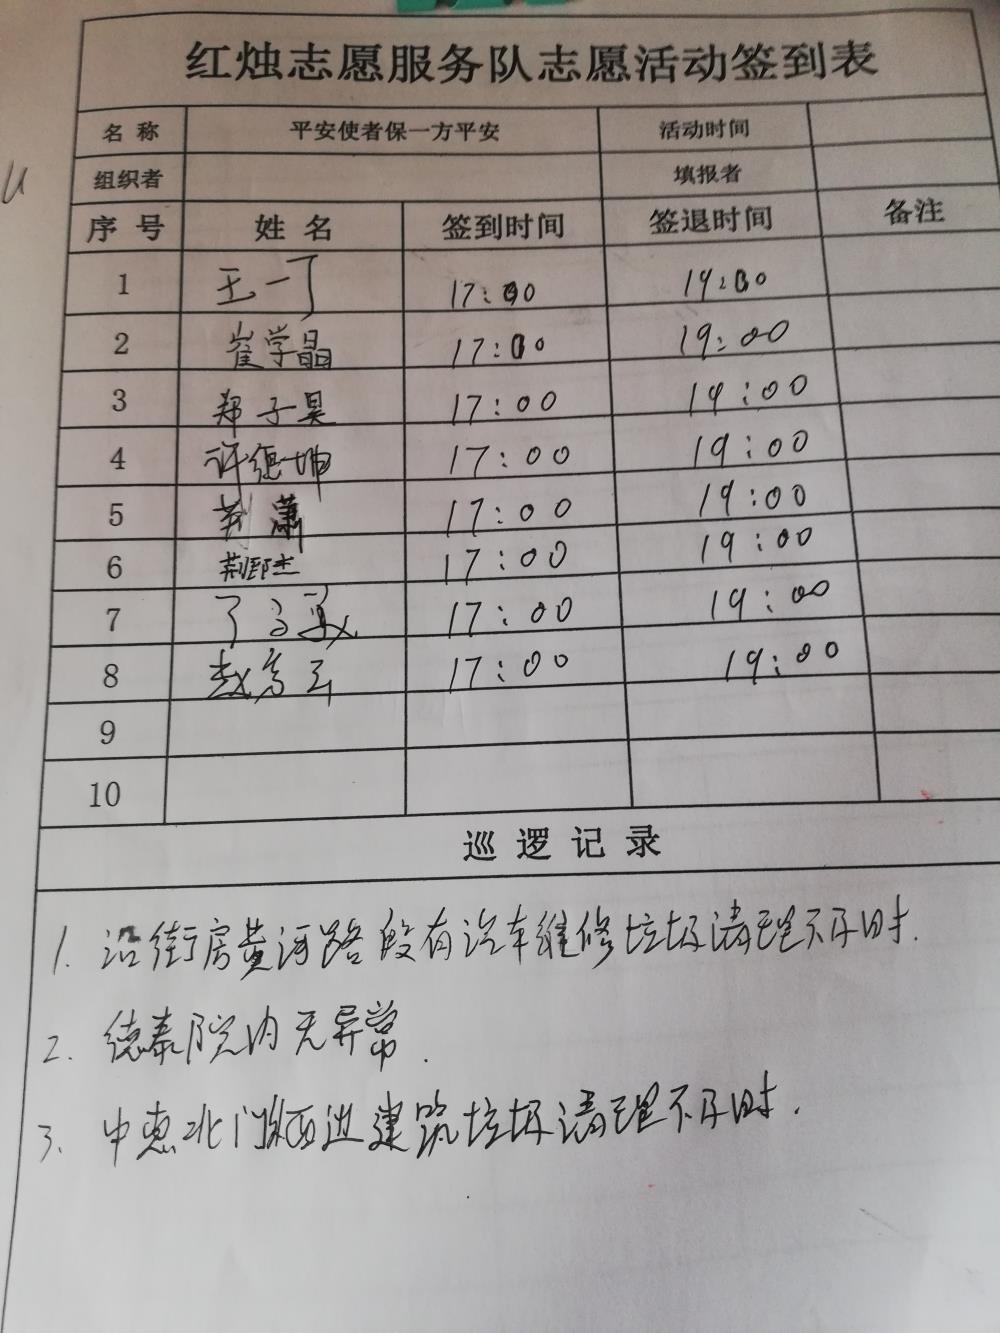 红烛志愿服务队志愿活动签到表
名 称 平安使者保一方平安 活动时间
组织者 填报者
序 号 姓 名 签到时间 签退时间 备注
1 王一丁 17:00 19:00
2 崔学晶 17:00 19:00
3 郑子昊 17:00 19:00
4 许德坤 17:00 19:00
5 荆潇 17:00 19:00
6 荆郎杰 17:00 19:00
7 丁 17:00 19:00
8 赵 17:00 19:00
9
10
巡 逻 记 录
1. 沿街房黄河路段有汽车维修垃圾清理不及时.
2. 德泰院内无异常.
3. 中惠北门西边建筑垃圾清理不及时.